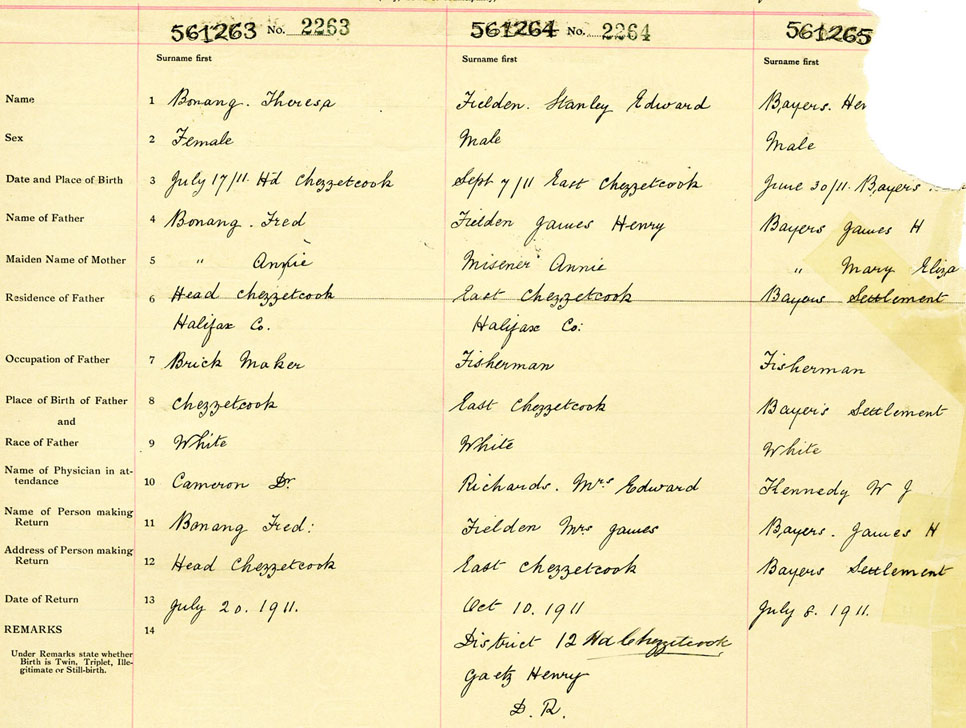 561263 No. 2263 561264 No. 2264 561265
Surname first Surname first Surname first
Name 1 Bonang. Theresa Fielden. Stanley Edward Bayers. Hen
Sex 2 Female Male Male
Date and Place of Birth 3 July 17/11. Hd Chezzetcook Sept 7/11 East Chezzetcook June 30/11. Bayers
Name of Father 4 Bonang. Fred Fielden James Henry Bayers James H
Maiden Name of Mother 5 " Annie Misener Annie " Mary Eliza
Residence of Father 6 Head Chezzetcook East Chezzetcook Bayers Settlement
Halifax Co. Halifax Co:
Occupation of Father 7 Brick Maker Fisherman Fisherman
Place of Birth of Father 8 Chezzetcook East Chezzetcook Bayer's Settlement
and
Race of Father 9 White White White
Name of Physician in at-
tendance 10 Cameron Dr. Richards. Mrs Edward Kennedy W J
Name of Person making
Return 11 Bonang Fred: Fielden Mrs James Bayers. James H
Address of Person making
Return 12 Head Chezzetcook East Chezzetcook Bayers Settlement
Date of Return 13 July 20. 1911. Oct 10. 1911 July 8. 1911.
REMARKS 14
District 12 Hd Chezzetcook
Under Remarks state whether
Birth is Twin, Triplet, Ille-
gitimate or Still-birth.
Gaetz Henry
D. R.